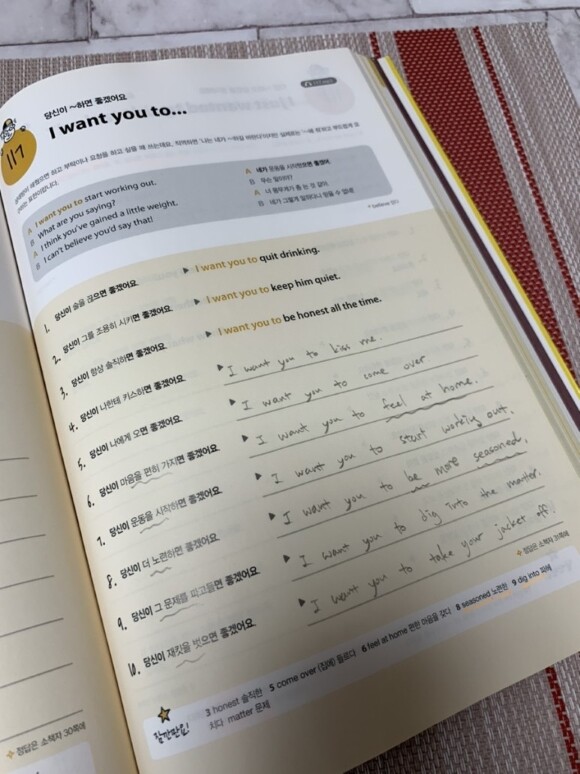 당신이 ~하면 좋겠어요
117
I want you to...
A I want you to start working out.
B What are you saying?
A I think you've gained a little weight.
B I can't believe you'd say that!
A 네가 운동을 시작했으면 좋겠어.
B 무슨 말이야?
A 너 몸무게가 좀 는 것 같아.
B 네가 그렇게 말하다니 믿을 수 없네!
* believe 믿다
1. 당신이 술을 끊으면 좋겠어요 ▶ I want you to quit drinking.
2. 당신이 그를 조용히 시키면 좋겠어요 ▶ I want you to keep him quiet.
3. 당신이 항상 솔직하면 좋겠어요 ▶ I want you to be honest all the time.
4. 당신이 나한테 키스하면 좋겠어요 ▶ I want you to kiss me.
5. 당신이 나에게 오면 좋겠어요 ▶ I want you to come over
6. 당신이 마음을 편히 가지면 좋겠어요 ▶ I want you to feel at home.
7. 당신이 운동을 시작하면 좋겠어요 ▶ I want you to start working out.
8. 당신이 더 노련하면 좋겠어요 ▶ I want you to be more seasoned.
9. 당신이 그 문제를 파고들면 좋겠어요 ▶ I want you to dig into the matter.
10. 당신이 재킷을 벗으면 좋겠어요 ▶ I want you to take your jacket off.
정답은 소책자 31쪽에
잠깐만요!
3 honest 솔직한 5 come over (집에) 들르다 6 feel at home 편한 마음을 갖다 8 seasoned 노련한 9 dig into 파헤
치다 matter 문제
정답은 소책자 30쪽에